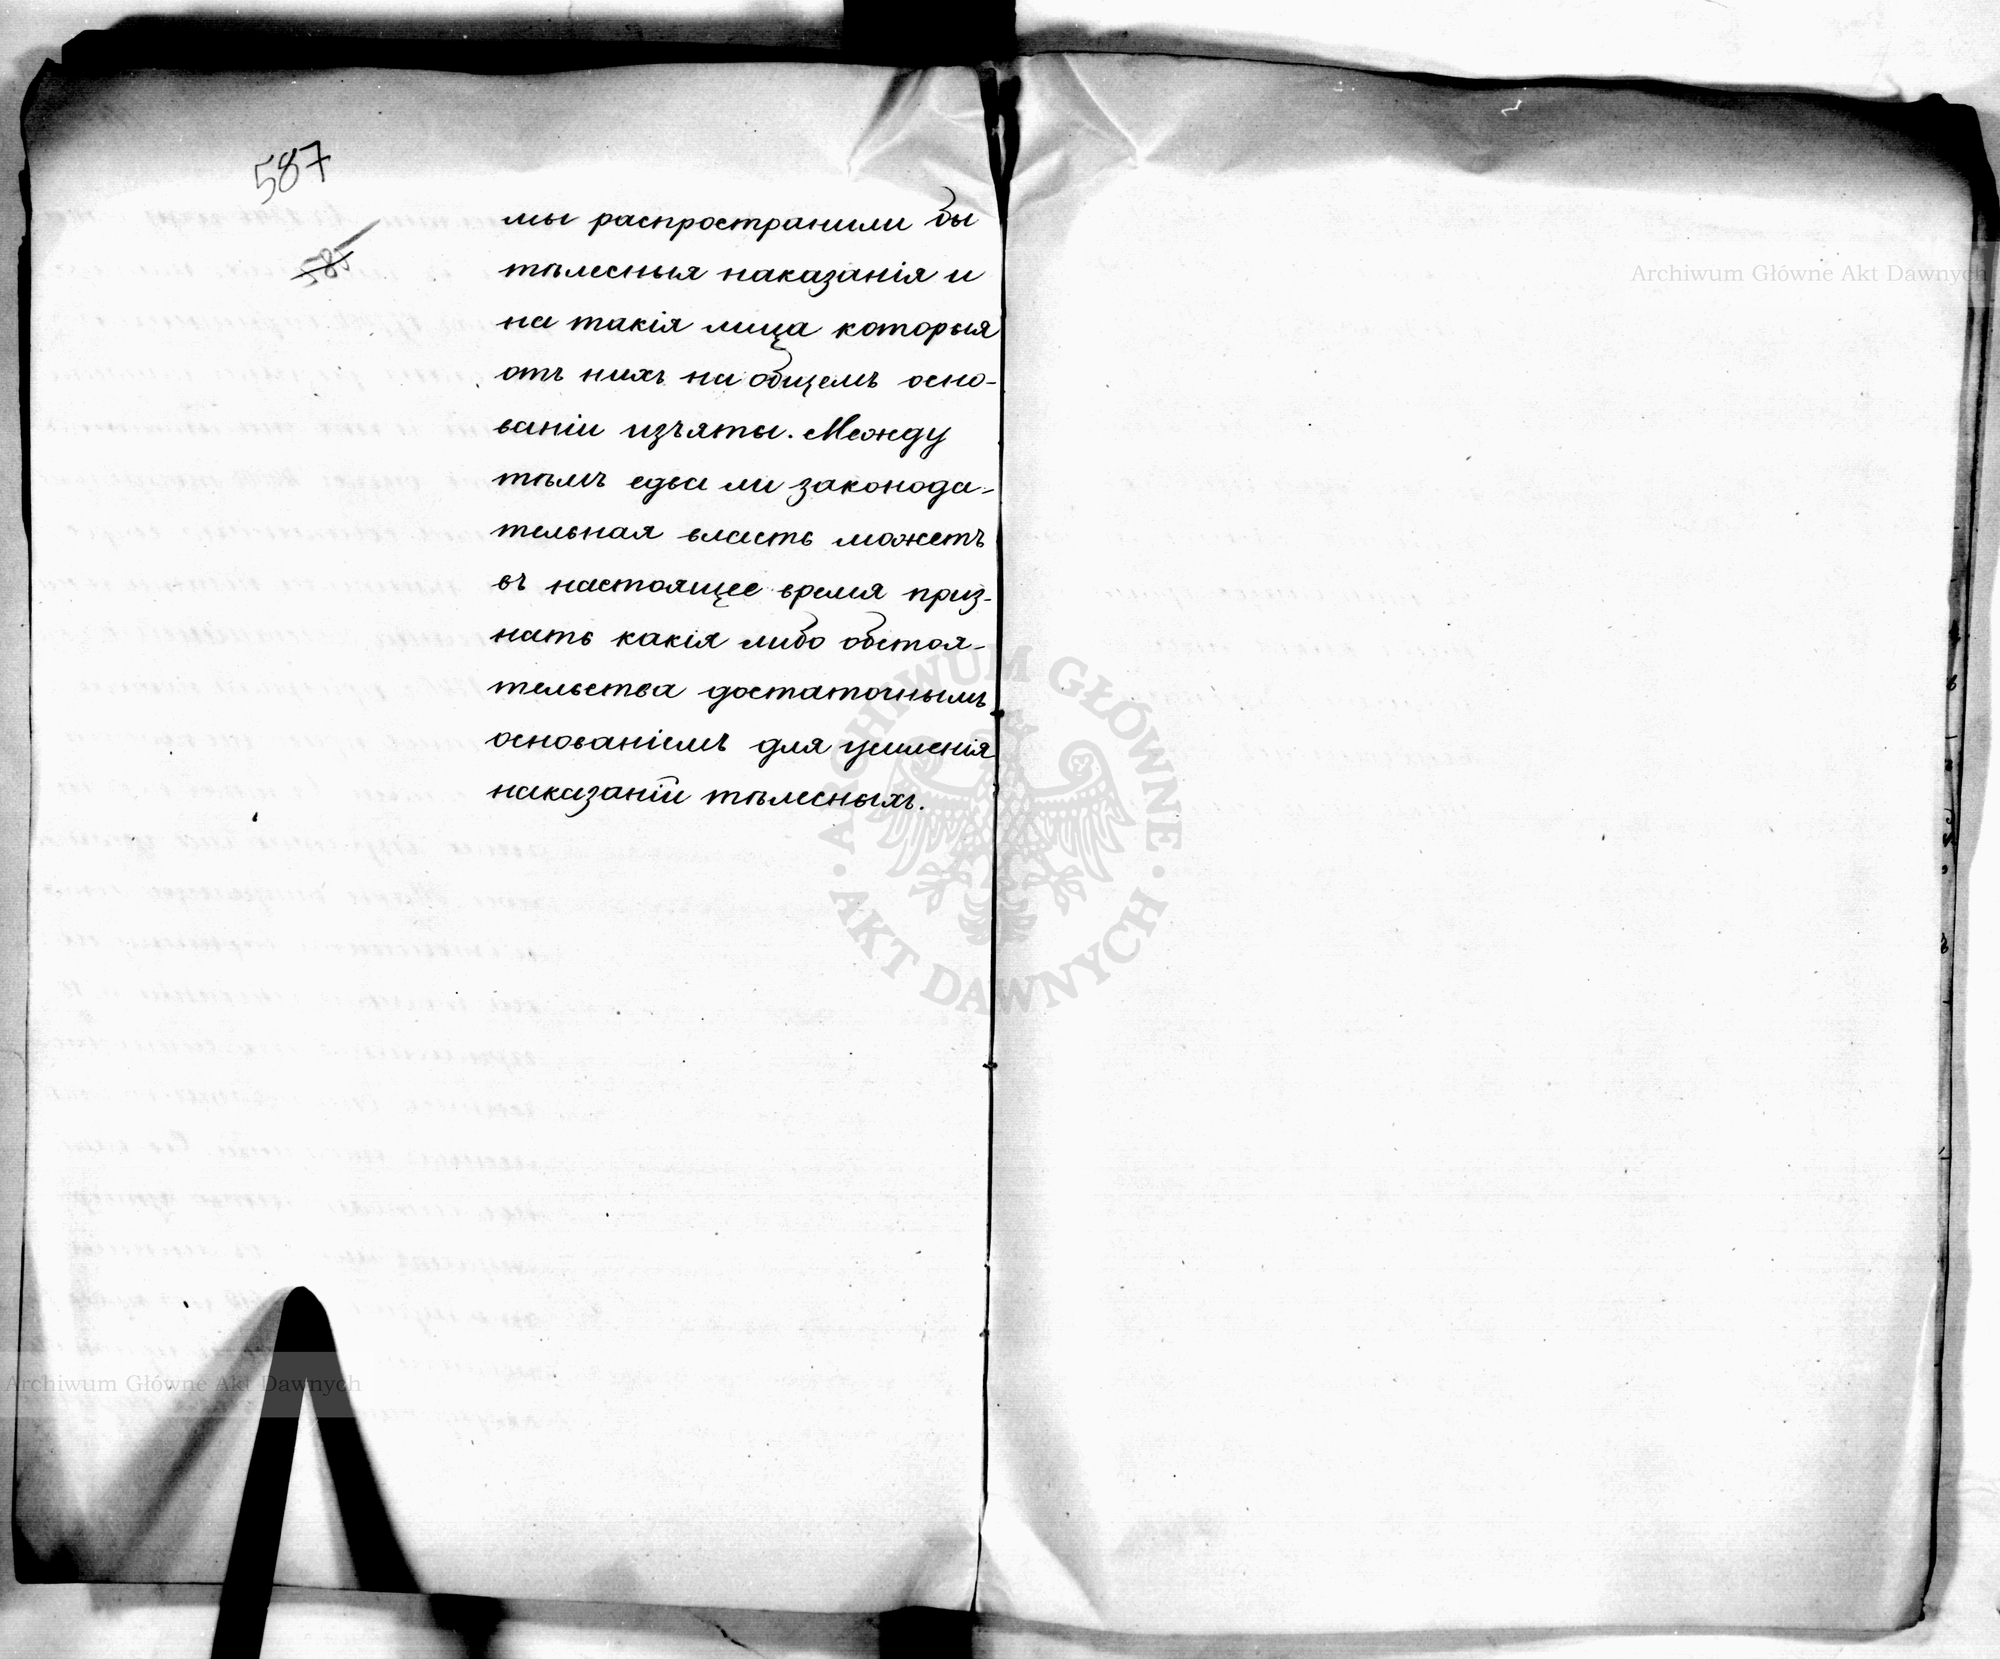 587
585
мы распространили бы
тѣлесныя наказанія и
на такія лица которыя
отъ нихъ на общемъ осно-
ваніи изъяты. Между
тѣмъ едва ли законода-
тельная власть можетъ
въ настоящее время приз-
нать какія либо обстоя-
тельства достаточнымъ
основаніемъ для усиленія
наказаній тѣлесныхъ.
Archiwum Główne Akt Dawnych
ARCHIWUM GŁÓWNE
AKT DAWNYCH
Archiwum Główne Akt Dawnych